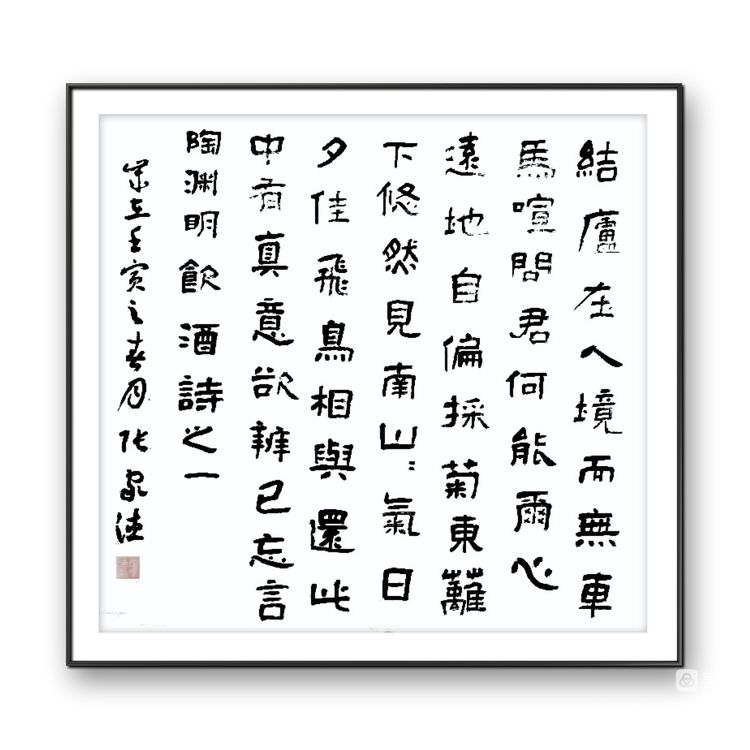 結廬在人境而無車
馬喧問君何能爾心
遠地自偏採菊東籬
下悠然見南山〻氣日
夕佳飛鳥相與還此
中有真意欲辯已忘言
陶淵明飲酒詩之一
歲在壬寅之春月